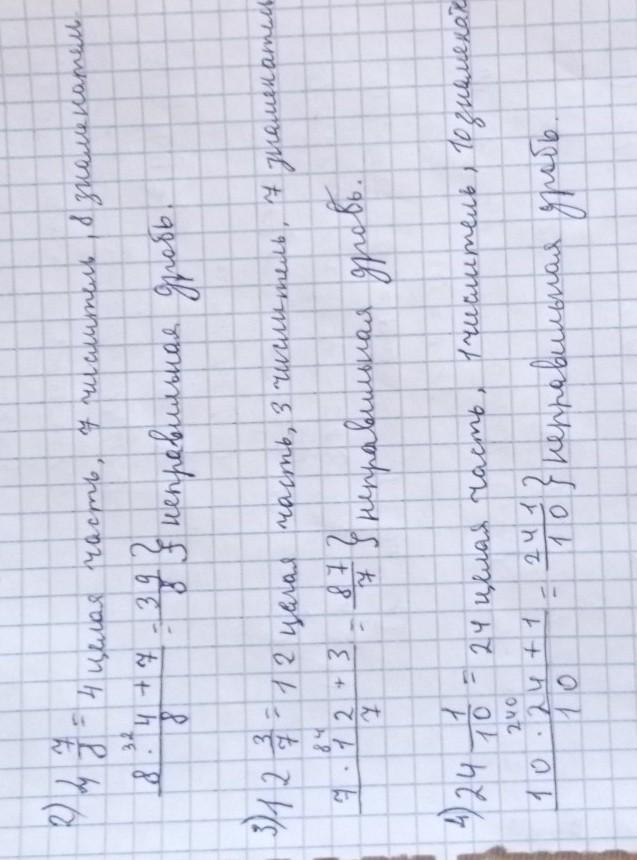 2) 4 7/8 = 4 целая часть, 7 числитель, 8 знаменател
32
8 · 4 + 7 / 8 = 39/8 } неправильная дробь.
3) 12 3/7 = 12 целая часть, 3 числитель, 7 знаменател
84
7 · 12 + 3 / 7 = 87/7 } неправильная дробь.
4) 24 1/10 = 24 целая часть, 1 числитель, 10 знаменате
240
10 · 24 + 1 / 10 = 241/10 } неправильная дробь.